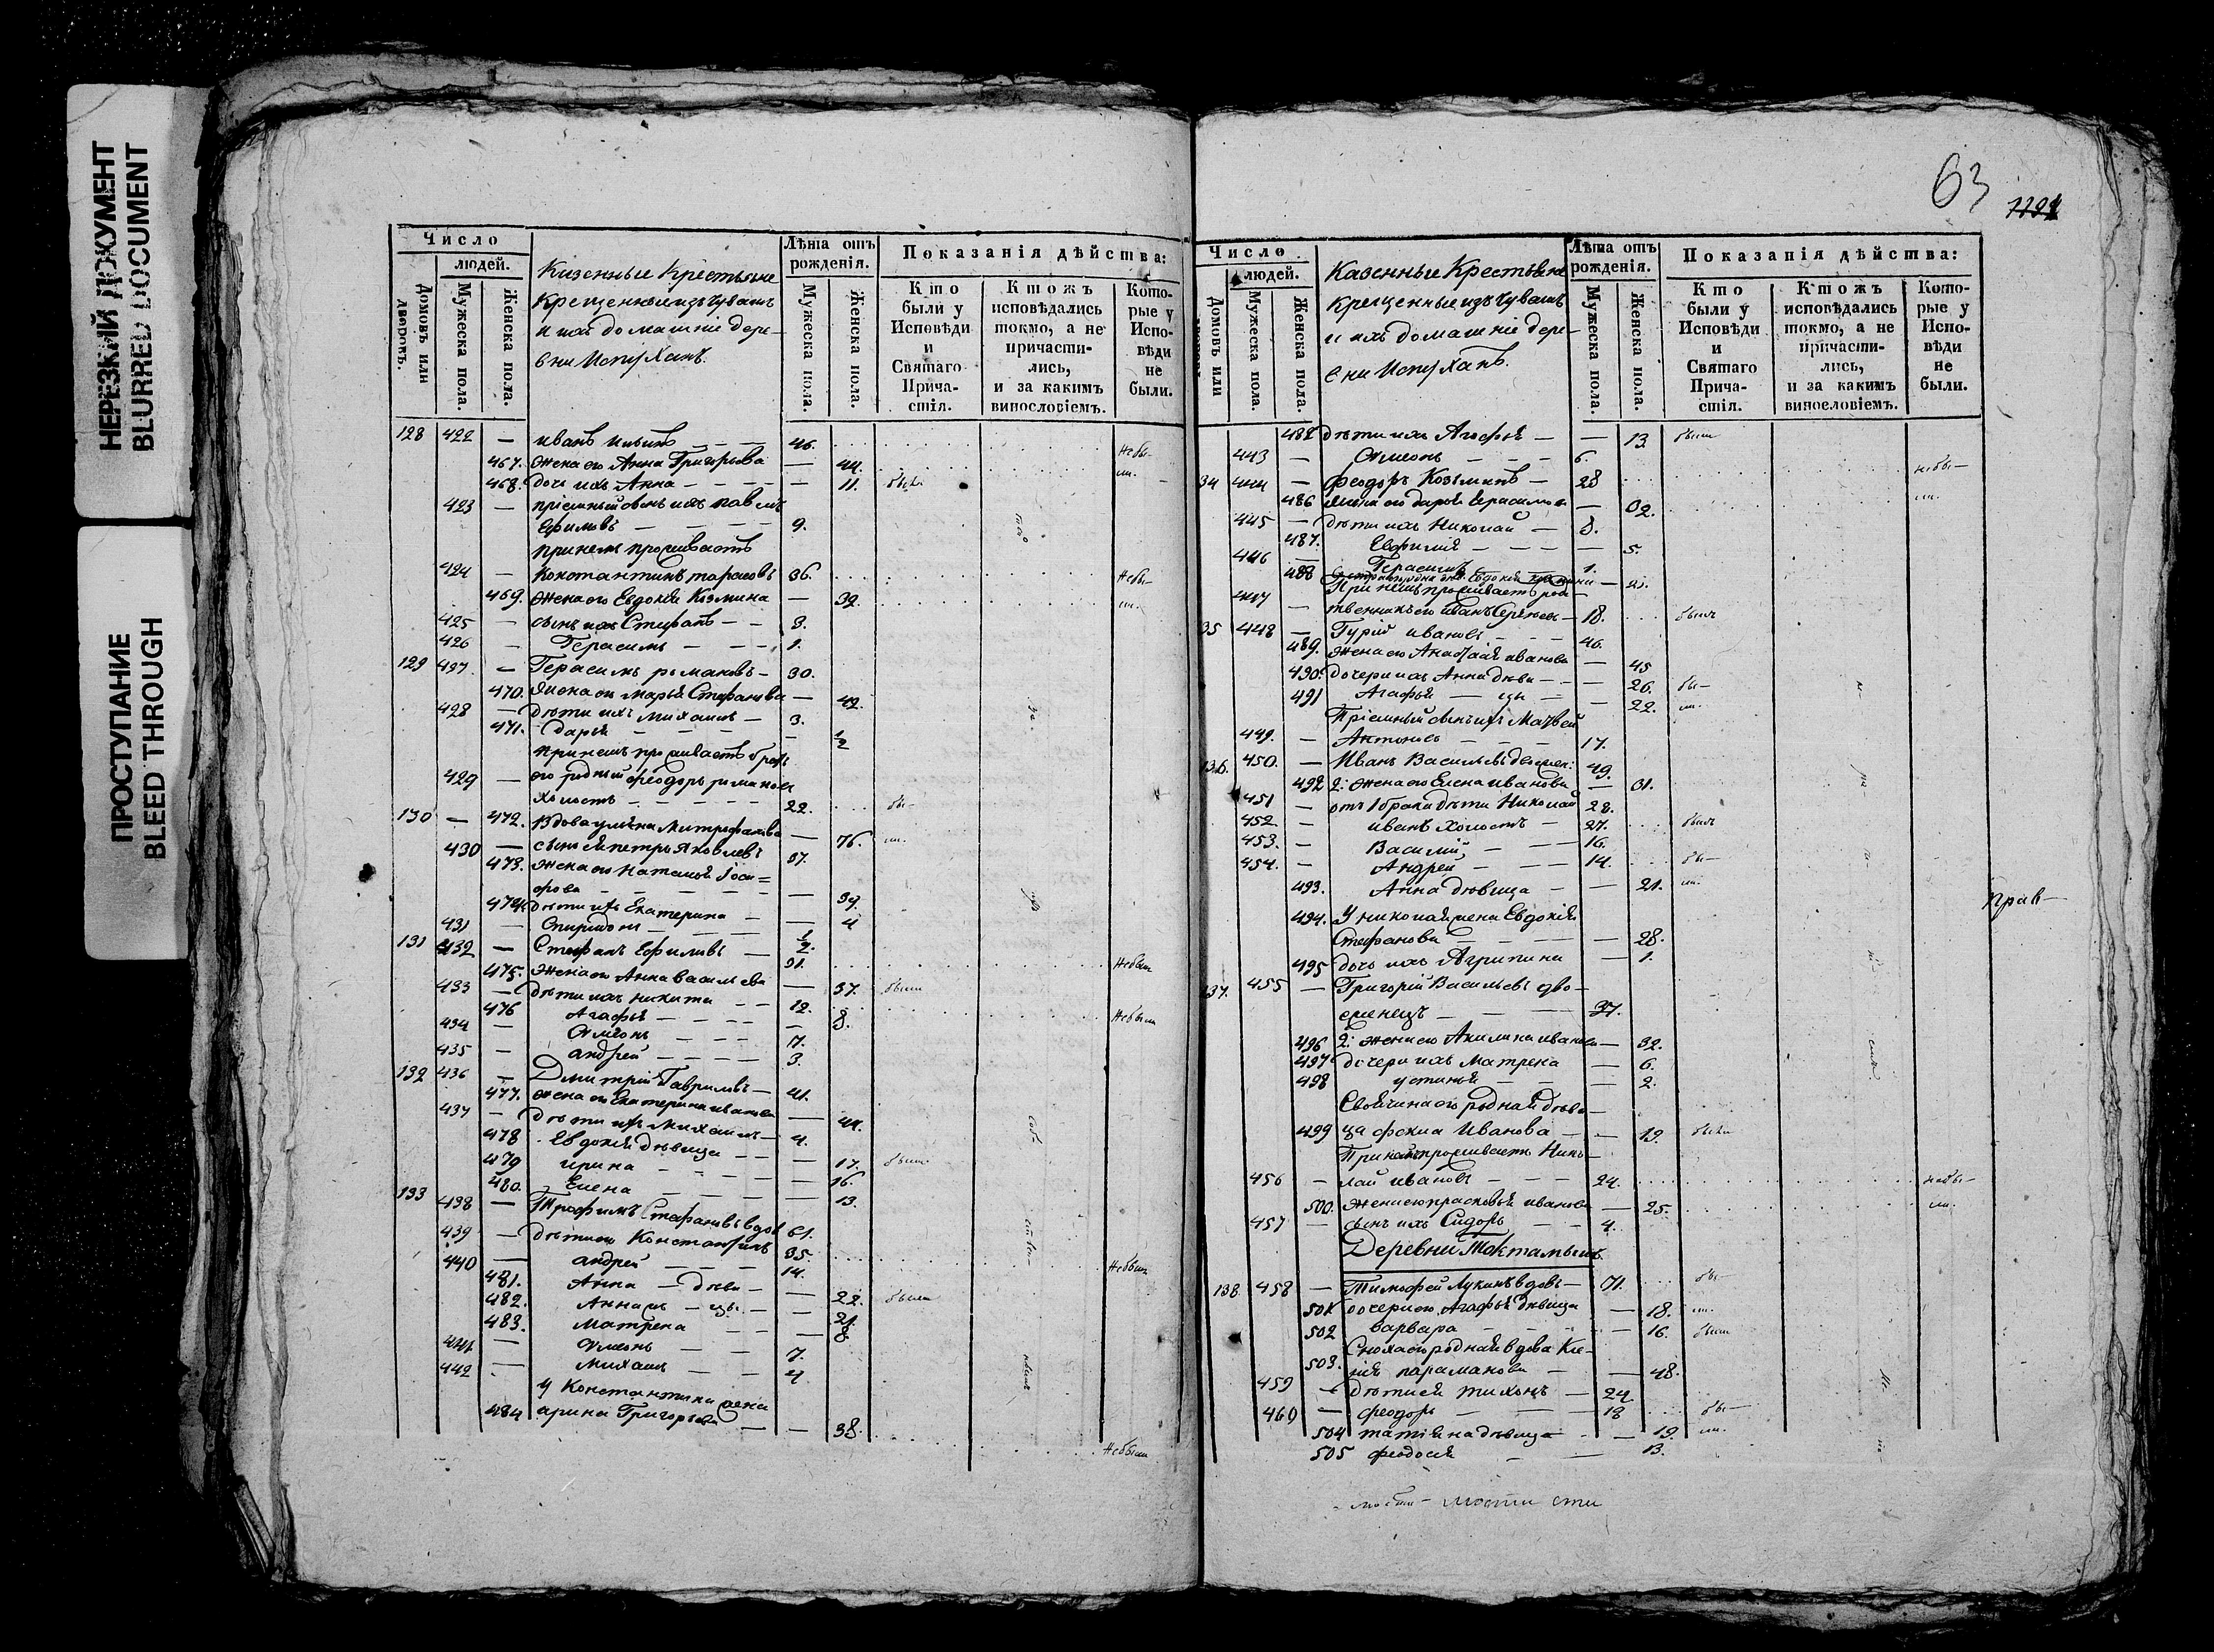 НЕРЕЗКИЙ ДОКУМЕНТ
BLURRED DOCUMENT
ПРОСТУПАНИЕ
BLEED THROUGH
Число
людей.
Домовъ или дворовъ.
Мужеска пола.
Женска пола.
Казенные Крестьяне
Крещенные изъ чувашъ
и ихъ домашніе дере-
вни
Лѣта отъ рожденія.
Мужеска пола.
Женска пола.
Показанія дѣйства:
Кто были у Исповѣди и Святаго Прича-стія.
Ктожъ исповѣдались токмо, а не причасти-лись, и за какимъ винословіемъ.
Кото-рые у Испо-вѣди не были.
128 422 — иванъ ильинъ — 46.
467. жена его Анна Григорьева — 44. небы-
468. дочь ихъ Анна — 11. была ли.
423 — пріемный сынъ ихъ павелъ
Ефимовъ — 9.
принемъ проживаетъ
424 — Константинъ тарасовъ 36. небы-
469. жена его Евдокія Козмина — 39. ли.
425 — сынъ ихъ Стефанъ — 3.
426 — Герасимъ — 1.
129 427 — Герасимъ романовъ — 30.
470. жена его марья Стефанова — 42.
428 — дѣти ихъ михаилъ — 3.
471. дарья — 1/2
принемъ проживаетъ братъ
429 — его родный феодоръ романовъ
холостъ — 22. бы-
130 — 472. вдова Митрофанова — 76. ли.
430 — сынъ ея петръ яковлевъ 37.
473. жена его наталья Іоси=
фова — 39.
474. дѣти ихъ Екатерина — 4
431 — Спиридонъ — 1/2.
131 432 — Стефанъ Ефимовъ — 31. небылъ
475. жена его Анна васильева — 37. были
433 — дѣти ихъ никита — 12.
476 Агафья — 8. небыли
434 — Симеонъ — 7.
435 — андрей — 3.
132 436 — Дмитрій Гавриловъ — 41.
477. жена его Екатерина иванова — 44.
437 — дѣти ихъ михаилъ — 4.
478. Евдокія дѣвица — 17. были
479 ирина — 16.
480. Елена — 13.
133 438 — Трофимъ Стефановъ вдовъ 61.
439 — дѣти его Константинъ 35.
440 — андрей — 14. небыли
481. Анна — дѣви — 22. были
482. Анна — цы. — 21
483. матрена — 8
441 — Симеонъ — 7.
442 — михаилъ — 4
у Константина жена
484 арина Григорьева — 38. небыли
63
Число
людей.
Домовъ или
Мужеска пола.
Женска пола.
Казенные Крестьяне
крещенные изъ чувашъ
и ихъ домашніе дере-
вни
Лѣта отъ рожденія.
Мужеска пола.
Женска пола.
Показанія дѣйства:
Кто были у Исповѣди и Святаго Прича-стія.
Ктожъ исповѣдались токмо, а не причасти-лись, и за какимъ винословіемъ.
Кото-рые у Испо-вѣди не были.
дѣти ихъ Агафья — 13. были
443 — Симеонъ — 6.
34 444 — феодоръ Козминъ — 28 небы-
486 жена его дарья Герасимова — 32. ли.
445 — дѣти ихъ Николай — 8.
487. Евфимія — 5.
446 — Герасимъ — 1.
488
При немъ проживаетъ род-
447 — ственникъ его иванъ Сергеевъ — 18. былъ
35 448 — Гурій ивановъ — 46.
489. жена его иванова — 45
490. дочери ихъ Анна дѣви — 26. бы-
491 Агафья — цы — 22. ли.
Пріемный сынъ ихъ Матвей
449. — Антоновъ — 17.
136. 450. — Иванъ Васильевъ двоежен: 49.
492 2: жена его Елена иванова — 31.
451 — отъ 1 брака дѣти Николай 28.
452 — иванъ холостъ — 27. былъ
453. — Василій — 16.
454. — Андрей — 14. бы-
493. Анна дѣвица — 21. ли.
494. У николая жена Евдокія
Стефанова — 28.
495 дочь ихъ Агрипина — 1.
прав-
137. 455 — Григорій Васильевъ дво-
еженецъ — 37.
496 2: жена его Акилина иванова — 32.
497 дочери ихъ матрена — 6.
498 устинья — 2.
Своячина его родная дѣви-
499 ца фекла Иванова — 19. была
При немъ проживаетъ Нико-
456 — лай ивановъ — 24. небы-
500. жена его прасковья иванова — 25. ли.
457 — сынъ ихъ Сидоръ — 4.
Деревни Токтамышъ
138 458 — Тимофей Лукинъ вдовъ — 71. бы-
501 дочери его Агафья дѣвица — 18. ли.
502 варвара — 16. были
Сноха его родная вдова Ксе-
503. нія параманова — 48.
459 — дѣти ея тихонъ — 24
460 — феодоръ — 18 бы-
504 татіяна дѣвица — 19. ли.
505 феодосія — 13.